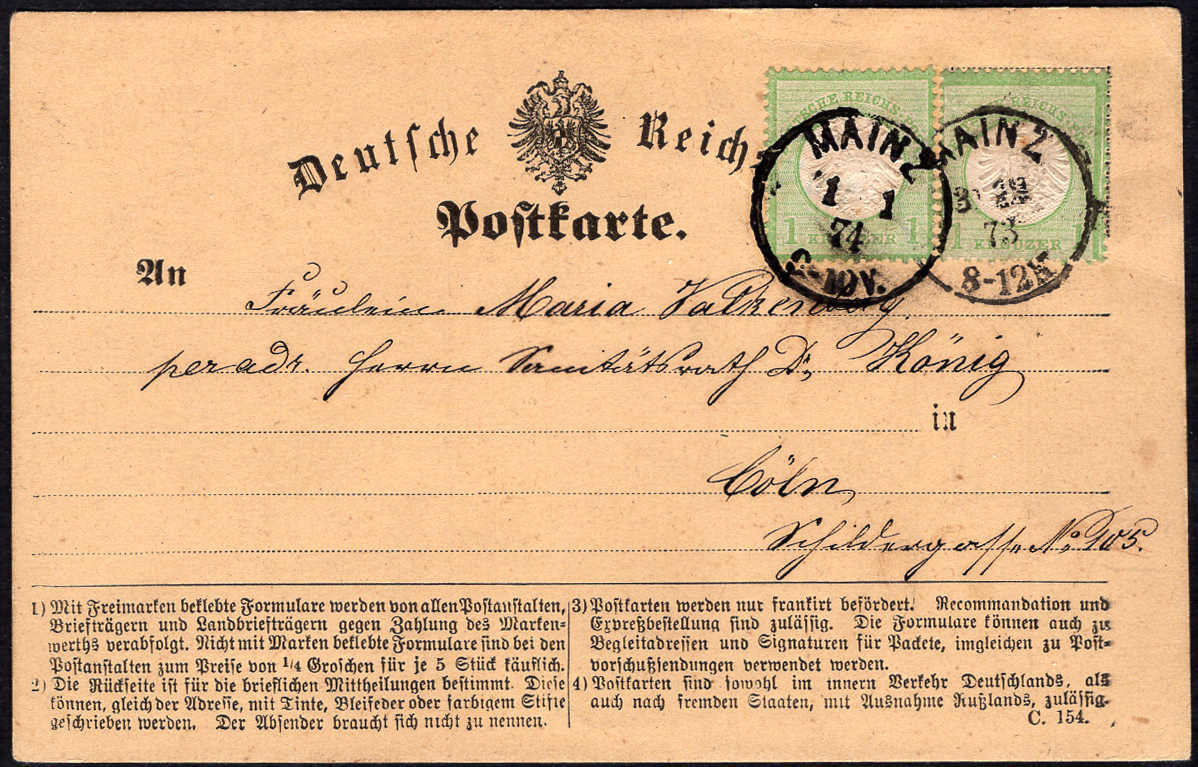 Deutsche Reichs-
Postkarte.
DEUTSCHE REICHS
1 KREUZER 1
REICHS
1 KREUZER
MAINZ
1 1
74
MAINZ
73
8-12
An
Fräulein Maria Valkenberg.
per adr. Herrn Sanitätsrath Dr. König
in
Cöln,
Schildergasse No 105.
1) Mit Freimarken beklebte Formulare werden von allen Postanstalten,
Briefträgern und Landbriefträgern gegen Zahlung des Marken-
werths verabfolgt. Nicht mit Marken beklebte Formulare sind bei den
Postanstalten zum Preise von 1/4 Groschen für je 5 Stück käuflich.
2) Die Rückseite ist für die brieflichen Mittheilungen bestimmt. Diese
können, gleich der Adresse, mit Tinte, Bleifeder oder farbigem Stifte
geschrieben werden. Der Absender braucht sich nicht zu nennen.
3) Postkarten werden nur frankirt befördert. Recommandation und
Expreßbestellung sind zulässig. Die Formulare können auch zu
Begleitadressen und Signaturen für Packete, imgleichen zu Post-
vorschußsendungen verwendet werden.
4) Postkarten sind sowohl im innern Verkehr Deutschlands, als
auch nach fremden Staaten, mit Ausnahme Rußlands, zulässig.
C. 154.